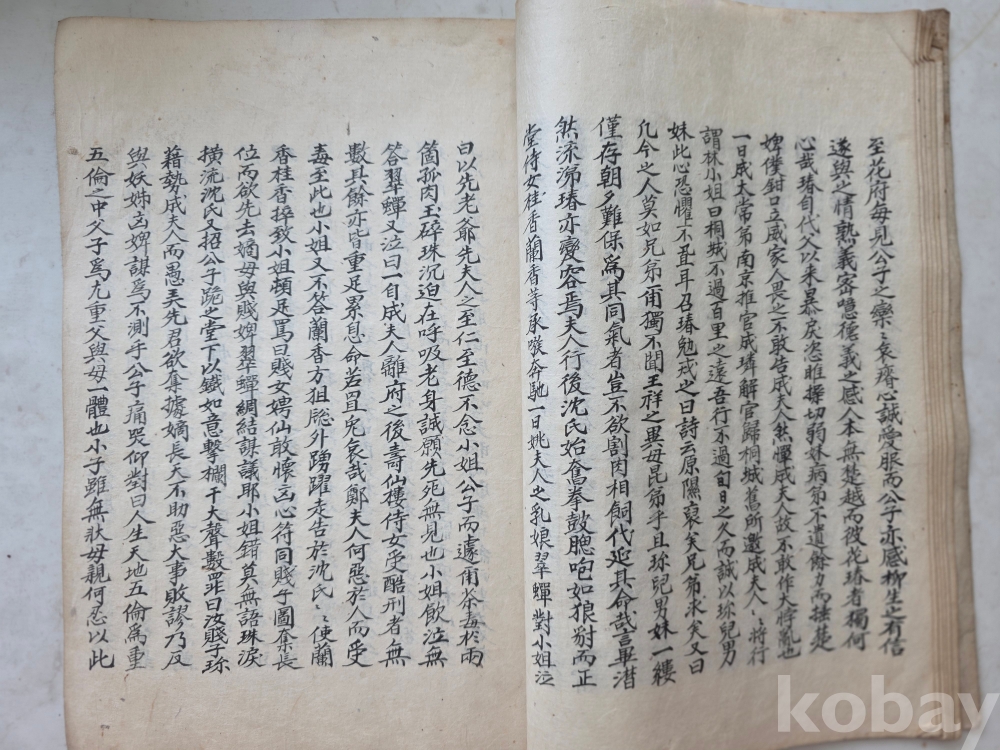 至花府每見公子之欒〻哀瘠心誠愛服而公子亦感柳生之有信
遂與之情熟義密噫德義之感人本無楚越而彼花瑃者獨何
心哉瑃自代父以來暴戾恣睢操切弱妹病弟不遺餘力而捶楚
婢僕鉗口立威家人畏之不敢告成夫人然憚成夫人故不敢作大悖亂也
一日成太常第南京推官成璘解官歸桐城舊所邀成夫人〻將行
謂林小姐曰桐城不過百里之遠吾行不過旬日之久而誠以珎兒男
妹此心恐懼不宜耳召瑃勉戒之曰詩云原隰裒矣兄弟求矣又曰
凡今之人莫如兄弟甭獨不聞王祥之異母昆弟乎且珎兒男妹一縷
僅存朝夕難保爲其同氣者豈不欲割肉相飼代延其命哉言畢潸
然流涕瑃亦變容焉夫人行後沈氏始奮拳鼓腮咆如狼㔢而正
堂侍女桂香蘭香等承嗾奔馳一日姚夫人之乳娘翠蟬對小姐泣
曰以先老爺先夫人之至仁至德不念小姐公子而遽甭荼毒於兩
箇孤肉玉碎珠沉迫在呼吸老身誠願先死無見也小姐飮泣無
答翠蟬又泣曰一自成夫人離府之後壽仙樓侍女受酷刑者無
數其餘亦皆重足累息命若罝兎哀哉鄭夫人何惡於人而受
毒至此也小姐又不答蘭香方狙牕外踴躍走告於沈氏〻〻使蘭
香桂香捽致小姐頓足罵曰賤女娉仙敢懷凶心符同賤子圖奪長
位而欲先去嫡母與賤婢翠蟬綢結謀議耶小姐錯莫無語珠淚
橫流沈氏又招公子跪之堂下以鐵如意擊欄干大聲數罪曰汝賤子珎
藉勢成夫人而愚美先君欲奪據嫡長天不助惡大事敗謬乃反
與妖姊凶婢謀爲不測乎公子痛哭仰對曰人生天地五倫爲重
五倫之中父子爲尤重父與母一體也小子雖無狀母親何忍以此
kobay